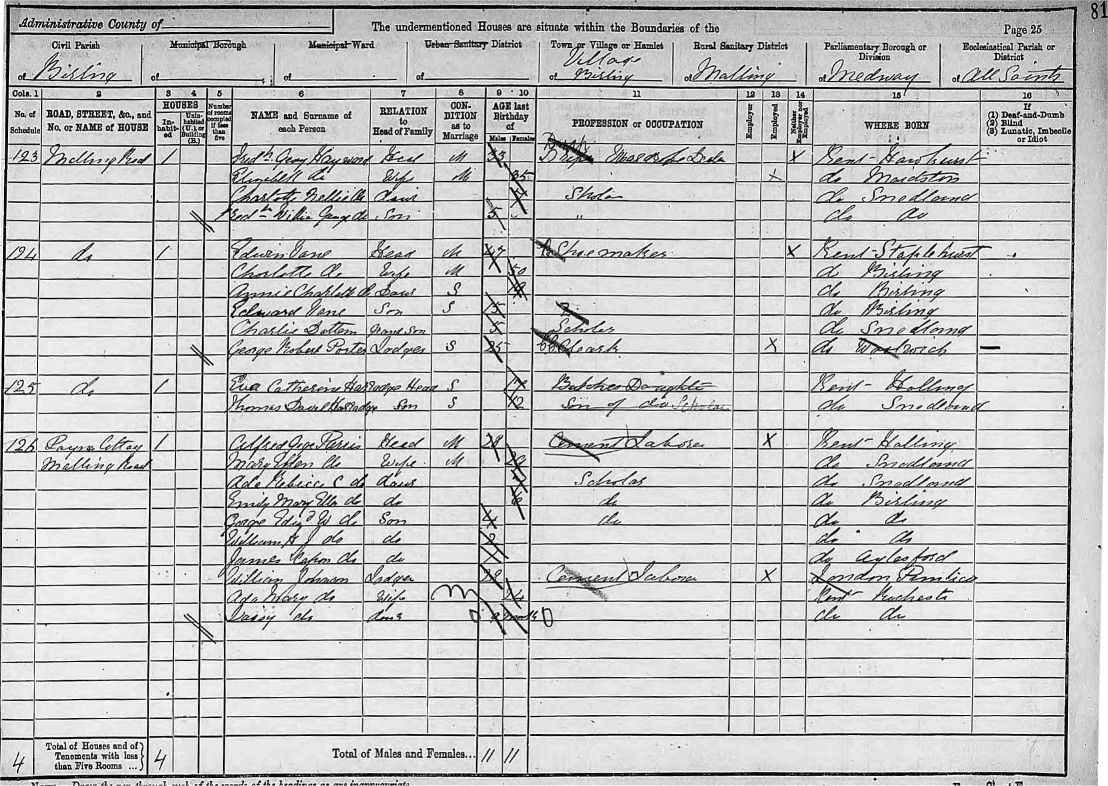 81
Administrative County of
The undermentioned Houses are situate within the Boundaries of the
Page 25
Civil Parish
of Birling
Municipal Borough
of
Municipal Ward
of
Urban Sanitary District
of
Town or Village or Hamlet
of Village Birling
Rural Sanitary District
of Malling
Parliamentary Borough or Division
of Medway
Ecclesiastical Parish or District
of All Saints
Cols. 1 2 3 4 5 6 7 8 9 10 11 12 13 14 15 16
No. of Schedule
ROAD, STREET, &c., and No. or NAME of HOUSE
HOUSES
Inhabited
Uninhabited (U.) or Building (B.)
Number of rooms occupied if less than five
NAME and Surname of each Person
RELATION to Head of Family
CONDITION as to Marriage
AGE last Birthday of
Males Females
PROFESSION or OCCUPATION
Employer
Employed
Neither Employer nor Employed
WHERE BORN
If
(1) Deaf-and-Dumb
(2) Blind
(3) Lunatic, Imbecile or Idiot
123 Malling Road 1 Fredk Hayward Head M 33 Dealer X Kent Hawkhurst
Elizabeth do Wife M 35 X do Maidstone
Charlotte Nellie do daur Scholar do Snodland
Fredk Willie George do Son 5 " do do
124 do 1 Edwin Vane Head M 47 Shoemaker X Kent Staplehurst
Charlotte do Wife M 50 do Birling
Annie Charlotte do Daur S 19 do Birling
Edward Vane Son S 15 do Birling
Charlie Bottem Grand Son 5 Scholar do Snodland
George Robert Porter Lodger S 25 Cleark X do Woolwich
125 do 1 Eva Catherine Head S 17 Butcher Daughter Kent Halling
Thomas Son S 12 Son of do Scholar do Snodland
126 Cottage 1 Alfred Head M 29 Cement Laborer X Kent Halling
Malling Road Mary Ellen do Wife M do Snodland
Ada do daur Scholar do Snodland
Emily Mary Ella do do 6 do do Birling
George W do Son 4 do do do
William H J do do do do
James do do do Aylesford
William Johnson Lodger Cement Laborer X London Pimlico
Ada Mary do Wife M 24 Kent Rochester
Daisy do daur 9 months do do
4
Total of Houses and of Tenements with less than Five Rooms ...
4
Total of Males and Females... 11 11